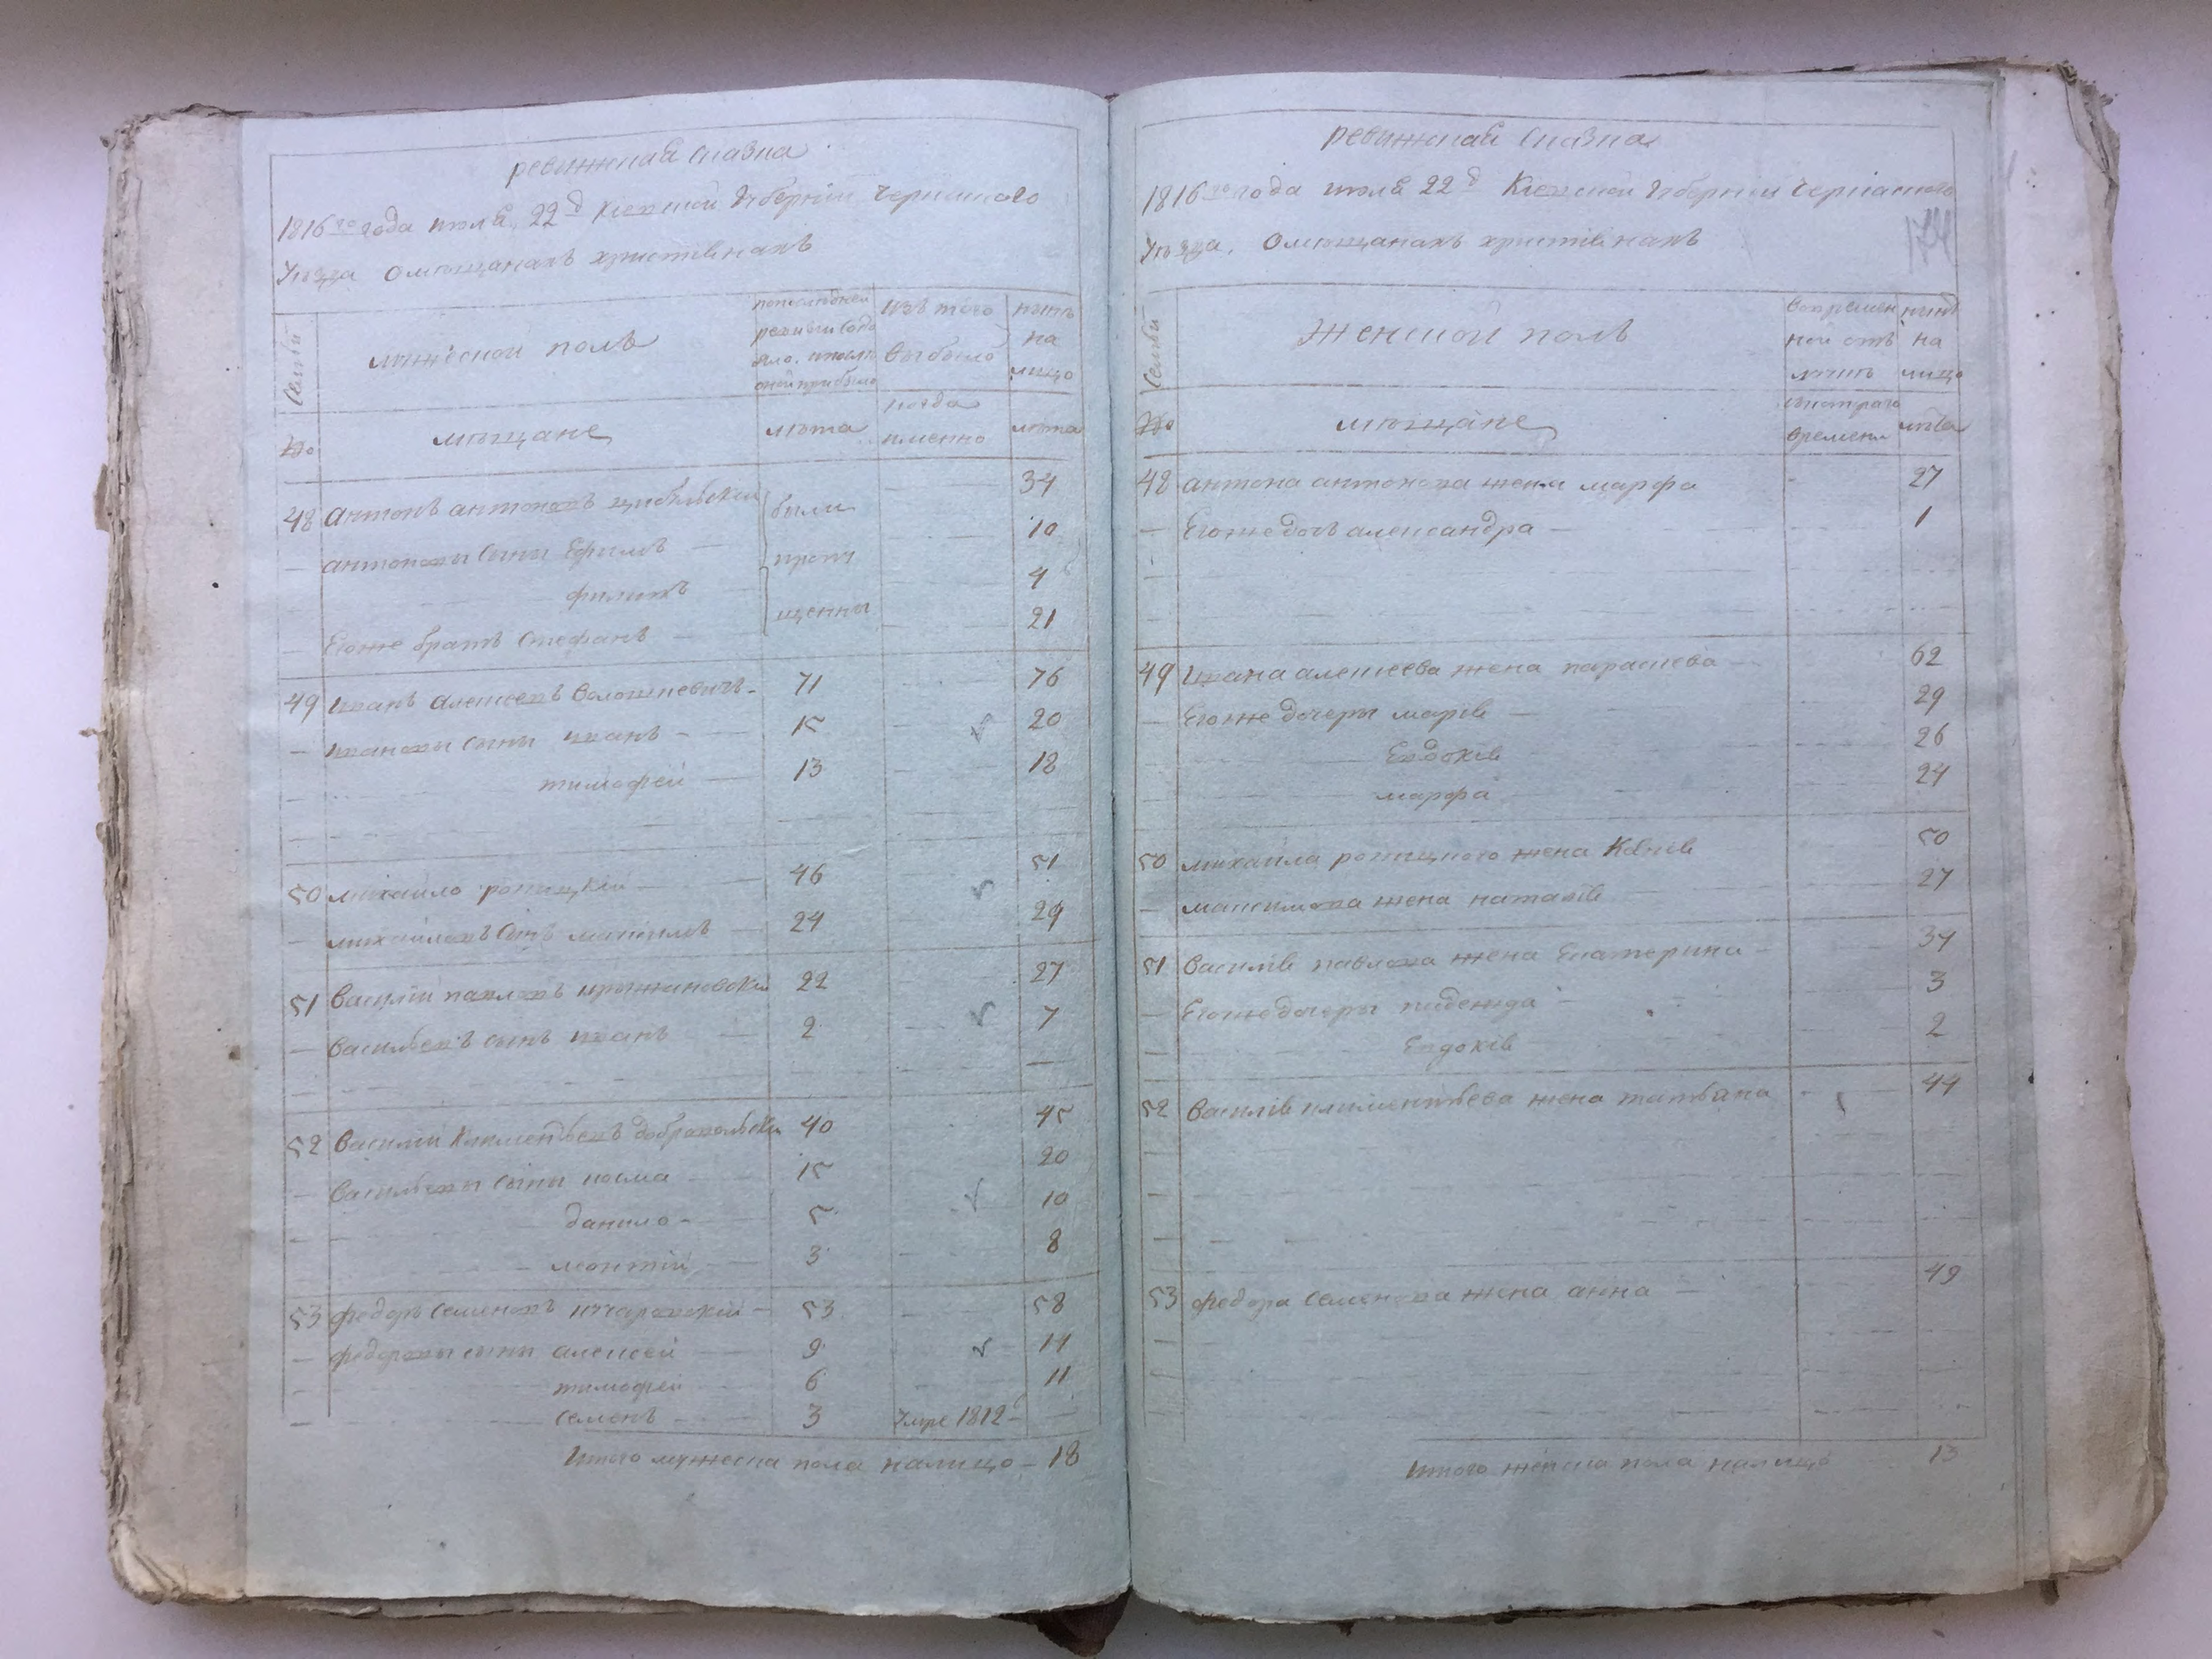 ревижная сказка
1816го года июля 22 д Киевской Губернии Черкаского
Уезда О мещанахъ християнахъ
Семьи
мужеской полъ
по последней ревизии состояло и после оной прибыло
изъ того выбыло
ныне на лицо
№
мещане
лета
когда именно
лета
48 антонъ антоновъ цибульской были 34
— антоновы сыны Ефимъ — пропу 10
филипъ 4
— Егоже братъ Стефанъ — щенны 21
49 Иванъ алексеевъ Волошкевичъ 71 76
— ивановы сыны иванъ 15 20
тимофей 13 18
50 михайло 46 51
— михайловъ сынъ максимъ 24 29
51 Василий павловъ кржижановский 22 27
— Васильевъ сынъ иванъ 2 7
52 Василий Климентьевъ добровольский 40 45
— Васильевы сыны козма 15 20
данило 5 10
3 8
53 федоръ семеновъ 53 58
— федоровы сыны алексей 9 14
тимофей 6 11
семенъ 3 Умре 1812
Итого мужеска пола налицо — 18
ревижная сказка
1816го года июля 22 д Киевской Губернии Черкаского
Уезда. О мещанахъ християнахъ
174
Семьи
Женской полъ
во временной отлучке
ныне на лицо
№
мещане
съ котораго времени
лета
48 антона антонова жена марфа 27
— Егоже дочь александра — 1
49 Ивана алексеева жена параскева 62
— Егоже дочеры мария 29
Евдокия 26
марфа 24
50 михайла жена Ксения 50
— максимова жена наталия 27
51 Василия павлова жена Екатерина 34
— Егоже дочеры надежда 3
Евдокия 2
52 Василия климентьева жена татьяна 44
53 федора семенова жена анна 49
Итого женска пола налицо 13